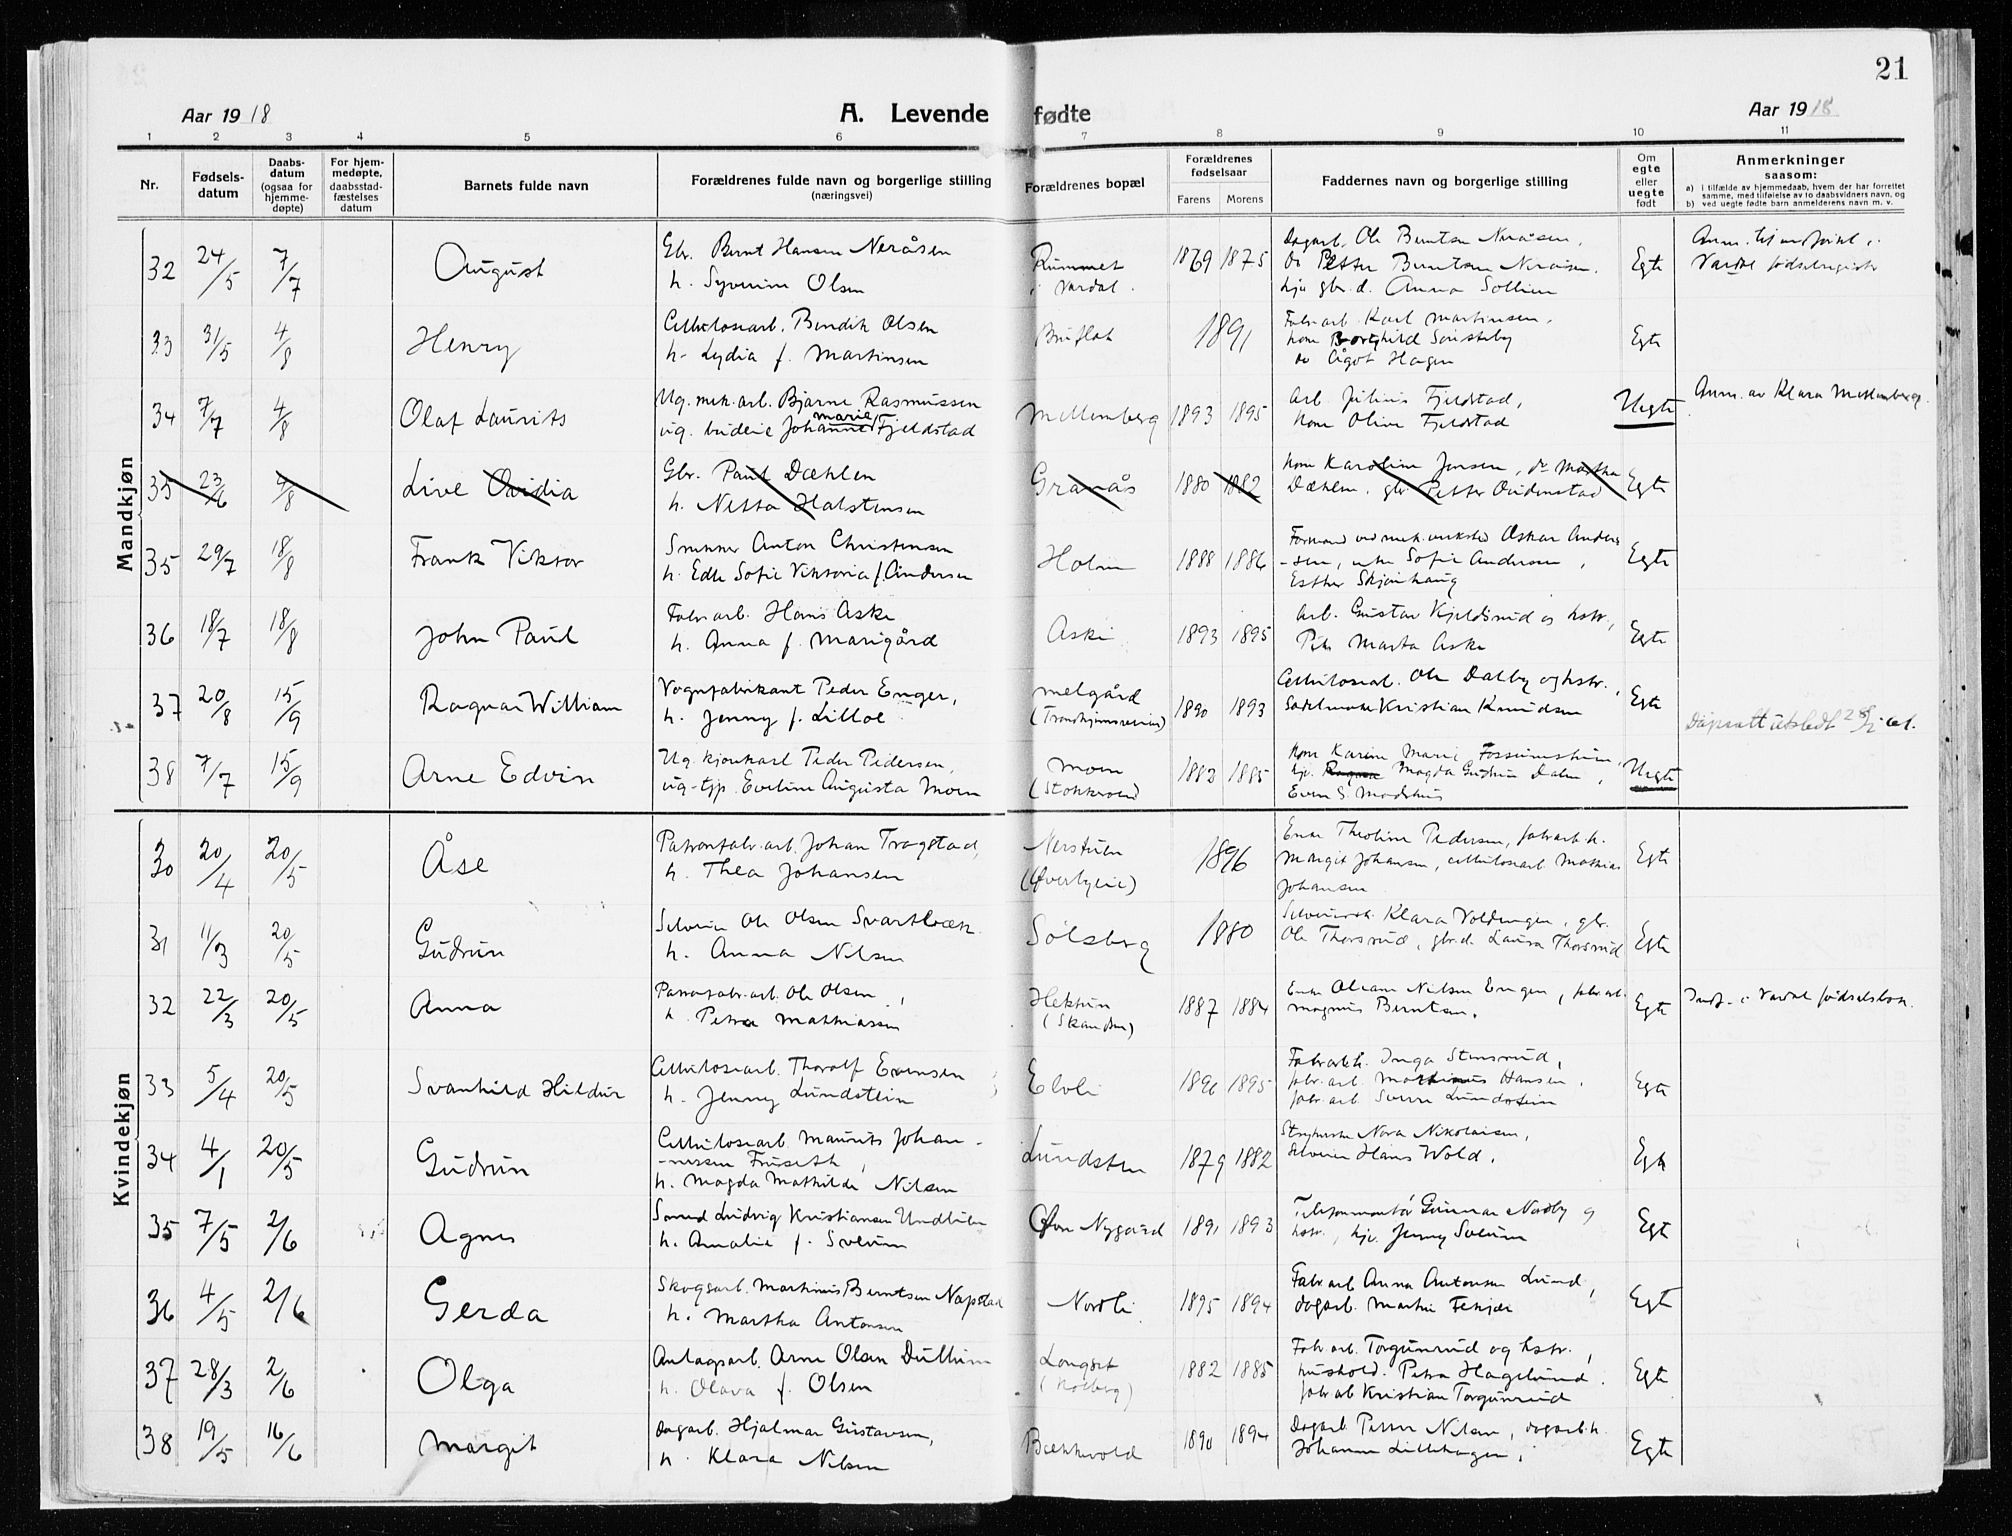 21
Aar 1918 A. Levende fødte Aar 1918
1 2 3 4 5 6 7 8 9 10 11
Nr.
Fødsels-
datum
Daabs-
datum
(ogsaa for
hjemme-
døpte)
For hjem-
medøpte,
daabsstad-
fæstelses
datum
Barnets fulde navn
Forældrenes fulde navn og borgerlige stilling
(næringsvei)
Forældrenes bopæl
Forældrenes
fødselsaar
Farens Morens
Faddernes navn og borgerlig stilling
Om
egte
eller
uegte
født
Anmerkninger
saasom:
a) i tilfælde av hjemmedaab, hvem der har forrettet
samme, med tilføielse av to daabsvidners navn, og
b) ved uegte fødte barn anmelderens navn m. v.
Mandkjøn
32 24/5 7/7 August
Gbr. Bernt Hansen Neråsen
h. Syverine Olsen
Rummet
i Vardal.
1869 1875
Dagarb. Ole Berntsen Neråsen,
do Petter Berntsen Neråsen.
hjv. gbr.d. Anna Sollien
Egte
Vardal fødselregister
33 31/5 4/8 Henry
Cellulosearb. Bendik Olsen
h. Lydia f. Martinsen
Bruflot
1891
Fabr.arb. Karl Martinsen,
kone Borghild
do Ågot Hagen
Egte
34 7/7 4/8 Olaf Laurits
Ug. mek.arb. Bjarne Rasmussen
marie
ug. budeie Johanne Fjeldstad
Mellemberg
1893 1895
Arb. Julius Fjeldstad,
kone Olive Fjeldstad
Uegte
Anm. av Klara Mellemberg.
35 23/6 4/8 Live Ovidia
Gbr. Paul Dæhlen
h. Netta Halstensen
Granås
1880 1882
kone Karoline Jensen, do Martha
Dæhlen, gbr Petter Oudenstad
Egte
35 29/7 18/8 Frank Viktor
Snekker Anton Christensen
h. Edle Sofie Viktoria f. Andersen
Holm
1888 1886
Formand ved mek. verksted Oskar Anders
-sen, enke Sofie Andersen,
Esther Skjønhaug
Egte
36 18/7 18/8 John Paul
Fabr.arb. Hans Aske
h. Anna f. Marigård
Aske
1893 1895
Arb. Gustav Kjeldsrud og hstr.,
Pike Marta Aske
Egte
37 20/8 15/9 Ragnar William
Vognfabrikant Peder Enger,
h. Jenny f. Lilloe
Melgård
1890 1893
Cellulosearb. Ole Dalby og hstr.,
Sadelmaker Kristian Knudsen
Egte
Dåpsatt utstedt 28/2 61.
38 7/7 15/9 Arne Edvin
Ug. kjørekarl Peder Pedersen,
ug. tjp. Eveline Augusta Moen
Moen
1883 1885
kone Karen Marie
hjv. Ragna Magda Gudrun Dalen,
Even S. Madshus
Uegte
Kvindekjøn
30 20/4 20/5 Åse
Patronfabr.arb. Johan Trogstad,
h. Thea Johansen
Nerstuen
(Øverbyeie)
1896
Enke Theoline Pedersen, fabrarb.h.
Margit Johansen, cellulosearb. Mathias
Johansen
Egte
31 11/3 20/5 Gudrun
Selveier Ole Olsen Svartbæk.
h. Anna Nilsen
Solsberg
1880
Selveiersk. Klara Voldengen, gbr.
Ole Thorsrud, gbr.d. Laura Thorsrud
Egte
32 22/3 20/5 Anna
Patronfabr.arb. Ole Olsen,
h. Petra Mathiassen
1887 1884
Enke Oleane Nilsen Engen, fabr.arb.
Magnus Berntsen.
Egte
Indf. i Vardal fødselsbok.
33 5/4 20/5 Svanhild Hildur
Cellulosearb. Thoralf Evensen
h. Jenny Lundstein
Elvli
1896 1895
Fabrarb.h. Inga Stensrud,
fabr.arb. Martinius Hansen,
fabr.arb Sverre Lundstein
Egte
34 4/1 20/5 Gudrun
Cellulosearb. Maurits Johan-
-nessen Fruseth,
h. Magda Mathilde Nilsen
Lundsten
1879 1882
Strykerske Nora Nikolaisen,
selveier Hans Wold.
Egte
35 7/5 2/6 Agnes
Smed Ludvig Kristiansen
h. Amalie f. Solum
Øvre Nygaard
1891 1893
Telefonmontør Gunnar Nordby og
hstr., hjv. Jenny Solum
Egte
36 4/5 2/6 Gerda
Skogsarb. Martinius Berntsen Napstad
h. Martha Antonsen
Nordli
1895 1894
Fabr.arb Anna Antonsen Lund,
dagarb. Martin Fekjær
Egte
37 28/3 2/6 Olga
Anlagsarb. Arne Olsen Dullum
h. Olava f. Olsen
Longset
(Kolberg)
1882 1885
Fabr.arb. Torgunrud og hstr.,
hushold. Petra Hagelund,
fabr.arb Kristian Torgunrud
Egte
38 19/5 16/6 Margit
Dagarb. Hjalmar Gustavsen,
h. Klara Nilsen
Bækkevold
1890 1894
Dagarb. Petter Nilsen, dagarb.h.
Johanne Lillehagen.
Egte